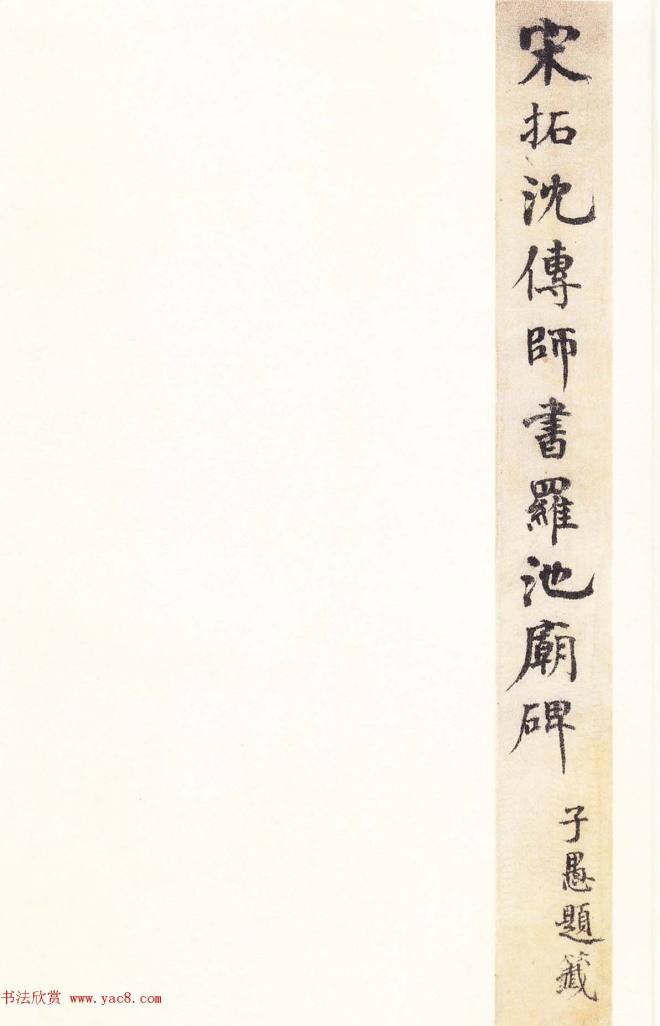 宋拓沈傳師書羅池廟碑
子愚題籤
书法欣赏 www.yac8.com